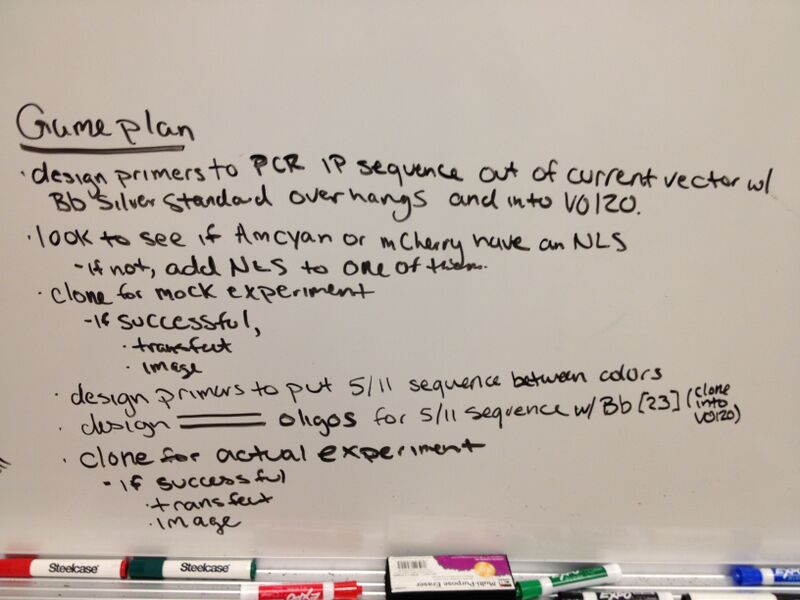 Game plan
· design primers to PCR IP sequence out of current vector w/
Bb Silver Standard overhangs and into V0120.
· look to see if Amcyan or mCherry have an NLS
- if not, add NLS to one of them.
· clone for mock experiment
- if successful,
· transfect
· image
· design primers to put 5/11 sequence between colors
· design oligos for 5/11 sequence w/ Bb [23] (clone into V0120)
· clone for actual experiment
- if successful
· transfect
· image
Steelcase
Steelcase
EXPO
Multi-Purpose Eraser
EXPO
EXPO
EXPO